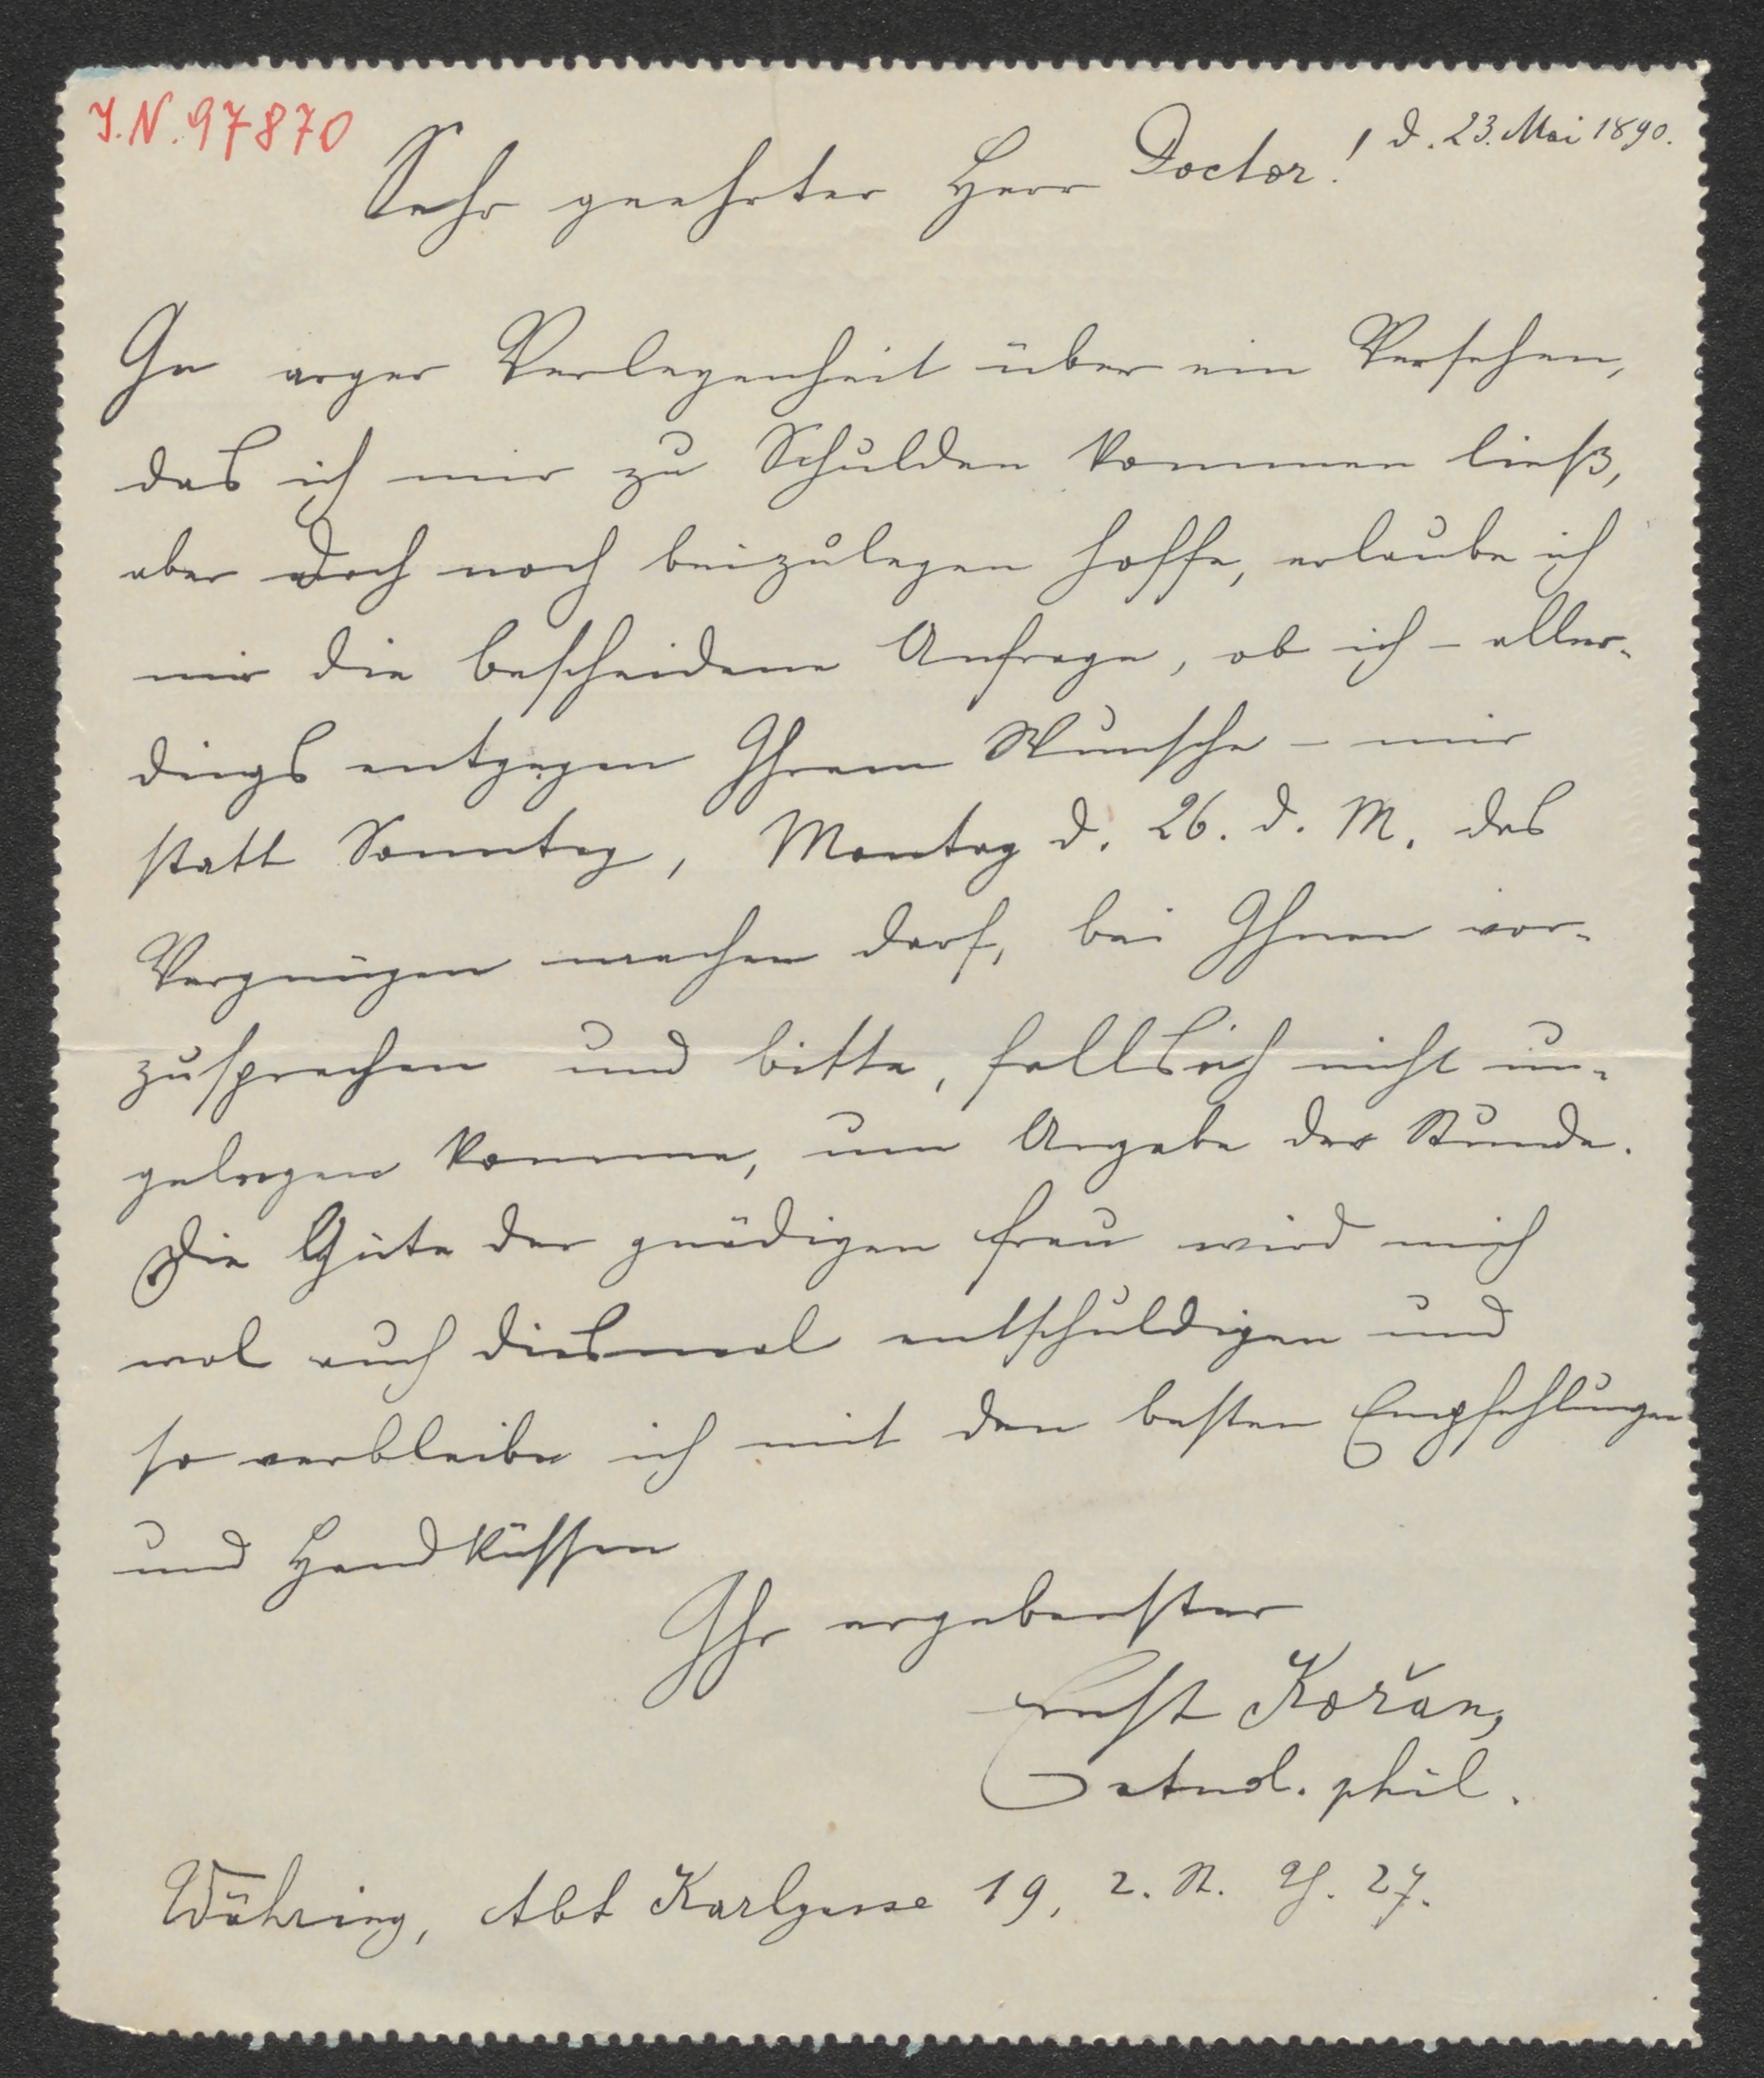 J.N. 97870
d. 23. Mai 1890.
Sehr geehrter Herr Doctor!
In arger Verlegenheit über ein Versehen,
das ich mir zu Schulden kommen ließ,
aber doch noch beizulegen hoffe, erlaube ich
mir die bescheidene Anfrage, ob ich – aller-
dings entgegen Ihrem Wunsche – mir
statt Sonntag, Montag d. 26. d. M. das
Vergnügen machen darf, bei Ihnen vor-
zusprechen und bitte, falls ich nicht un-
gelegen komme, um Angabe der Stunde.
Die Güte der gnädigen Frau wird mich
wol auch diesmal entschuldigen und
so verbleibe ich mit den besten Empfehlungen
und Handküssen
Ihr ergebenster
Ernst Kořan,
stud. phil.
Währing, Abt Karlgasse 19, 2. St. Th. 27.